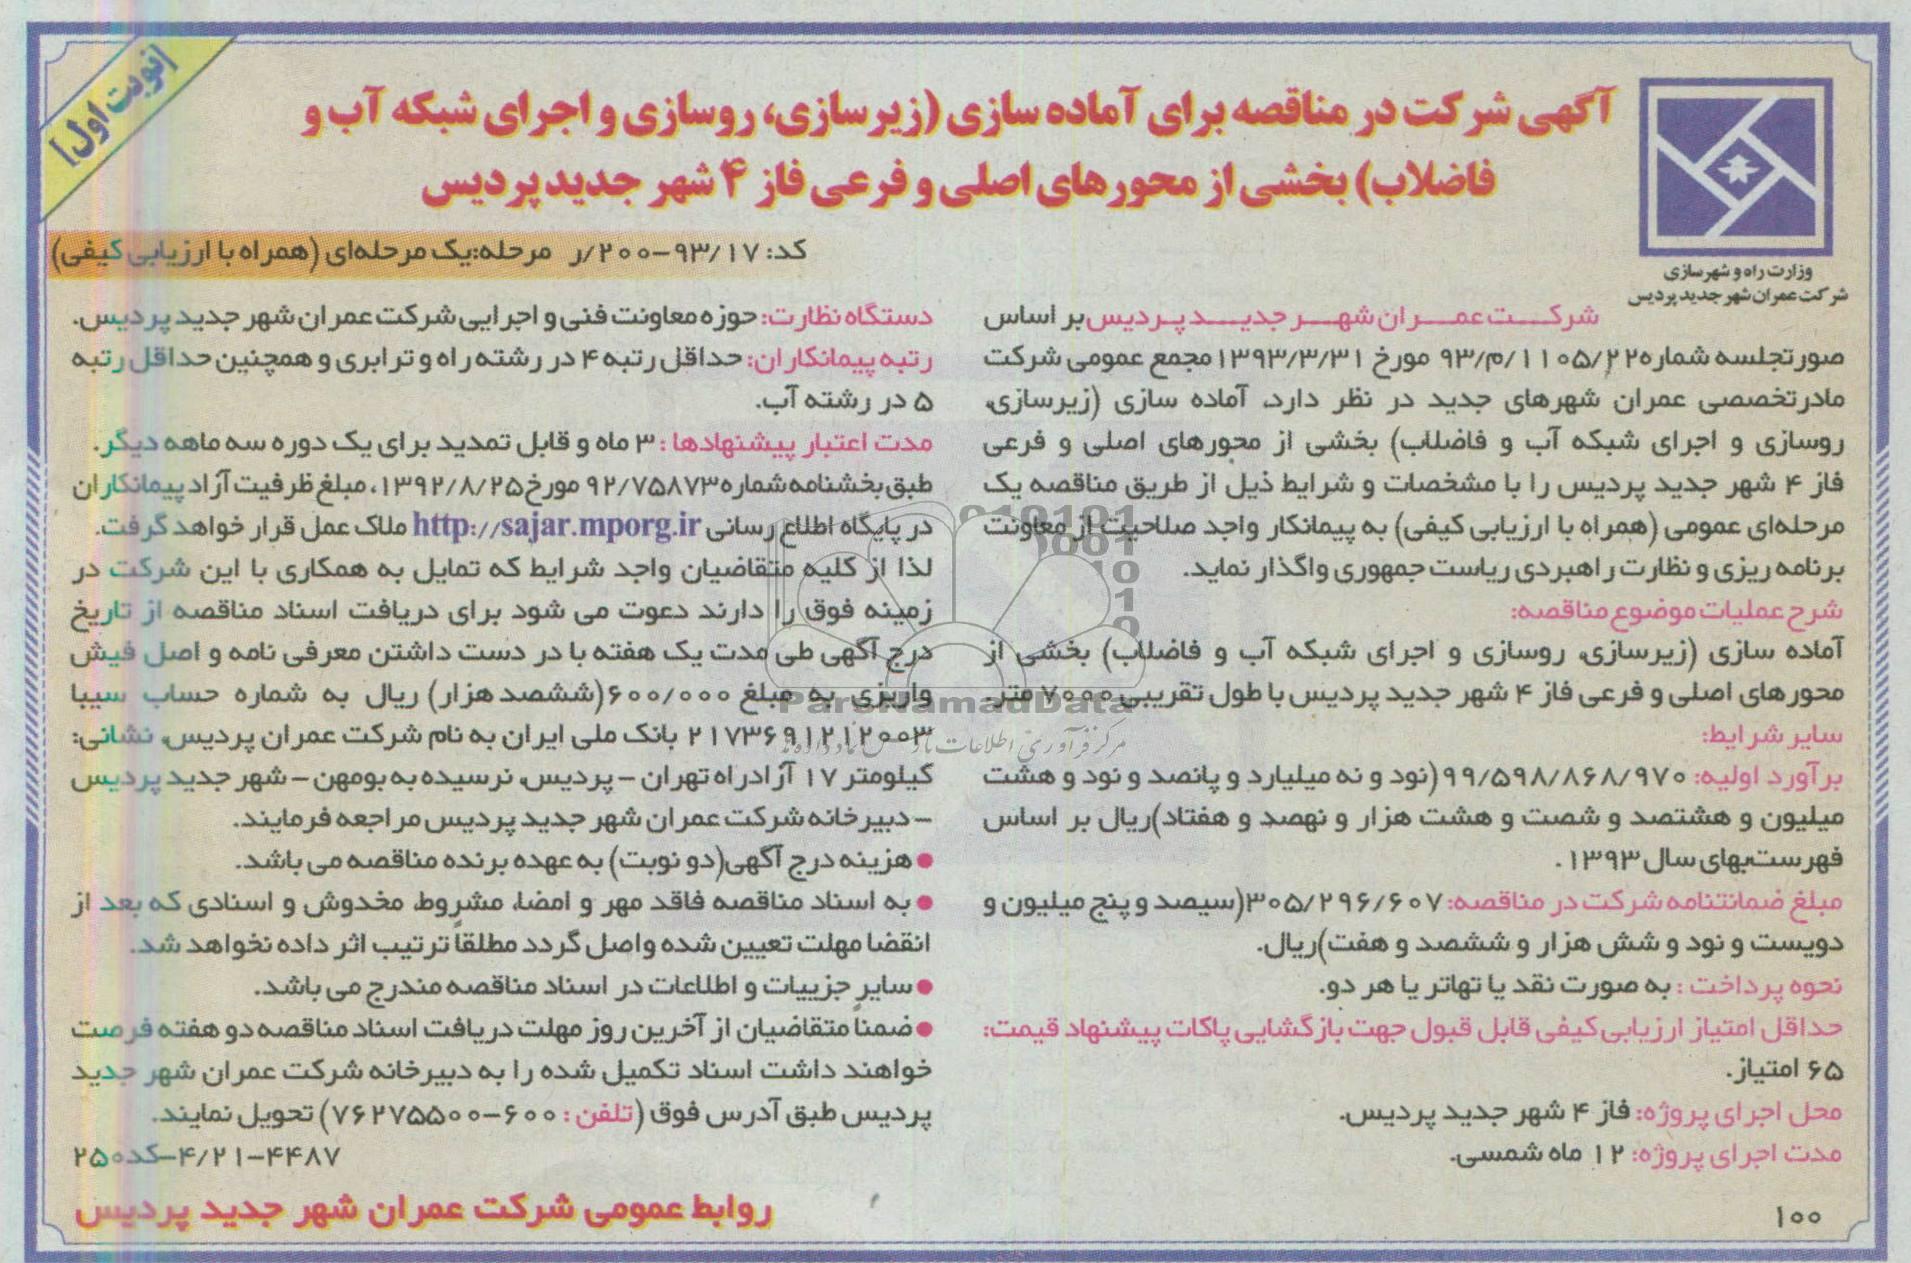 نوبت اول
آگهی شرکت در مناقصه برای آماده سازی (زیرسازی، روسازی و اجرای شبکه آب و
فاضلاب) بخشی از محورهای اصلی و فرعی فاز ۴ شهر جدید پردیس
وزارت راه و شهرسازی
شرکت عمران شهر جدید پردیس
کد: ۹۳/۱۷-۲۰۰/ر مرحله: یک مرحله‌ای (همراه با ارزیابی کیفی)
شرکت عمران شهر جدید پردیس بر اساس
صورتجلسه شماره ۱۱۰۵/۲۲/م/۹۳ مورخ ۱۳۹۳/۳/۳۱ مجمع عمومی شرکت
مادر تخصصی عمران شهرهای جدید در نظر دارد، آماده سازی (زیرسازی،
روسازی و اجرای شبکه آب و فاضلاب) بخشی از محورهای اصلی و فرعی
فاز ۴ شهر جدید پردیس را با مشخصات و شرایط ذیل از طریق مناقصه یک
مرحله‌ای عمومی (همراه با ارزیابی کیفی) به پیمانکار واجد صلاحیت از معاونت
برنامه ریزی و نظارت راهبردی ریاست جمهوری واگذار نماید.
شرح عملیات موضوع مناقصه:
آماده سازی (زیرسازی، روسازی و اجرای شبکه آب و فاضلاب) بخشی از
محورهای اصلی و فرعی فاز ۴ شهر جدید پردیس با طول تقریبی ۷۰۰۰ متر.
سایر شرایط:
برآورد اولیه: ۹۹/۵۹۸/۸۶۸/۹۷۰ (نود و نه میلیارد و پانصد و نود و هشت
میلیون و هشتصد و شصت و هشت هزار و نهصد و هفتاد) ریال بر اساس
فهرست‌بهای سال ۱۳۹۳.
مبلغ ضمانتنامه شرکت در مناقصه: ۳۰۵/۲۹۶/۶۰۷ (سیصد و پنج میلیون و
دویست و نود و شش هزار و ششصد و هفت) ریال.
نحوه پرداخت: به صورت نقد یا تهاتر یا هر دو.
حداقل امتیاز ارزیابی کیفی قابل قبول جهت بازگشایی پاکات پیشنهاد قیمت:
۶۵ امتیاز.
محل اجرای پروژه: فاز ۴ شهر جدید پردیس.
مدت اجرای پروژه: ۱۲ ماه شمسی.
۱۰۰
دستگاه نظارت: حوزه معاونت فنی و اجرایی شرکت عمران شهر جدید پردیس.
رتبه پیمانکاران: حداقل رتبه ۴ در رشته راه و ترابری و همچنین حداقل رتبه
۵ در رشته آب.
مدت اعتبار پیشنهادها: ۳ ماه و قابل تمدید برای یک دوره سه ماهه دیگر.
طبق بخشنامه شماره ۹۲/۷۵۸۷۳ مورخ ۱۳۹۲/۸/۲۵، مبلغ ظرفیت آزاد پیمانکاران
در پایگاه اطلاع رسانی http://sajar.mporg.ir ملاک عمل قرار خواهد گرفت.
لذا از کلیه متقاضیان واجد شرایط که تمایل به همکاری با این شرکت در
زمینه فوق را دارند دعوت می شود برای دریافت اسناد مناقصه از تاریخ
درج آگهی طی مدت یک هفته با در دست داشتن معرفی نامه و اصل فیش
واریزی به مبلغ ۶۰۰/۰۰۰ (ششصد هزار) ریال به شماره حساب سیبا
۲۱۷۳۶۹۱۲۱۲۰۰۳ بانک ملی ایران به نام شرکت عمران پردیس، نشانی:
کیلومتر ۱۷ آزادراه تهران - پردیس، نرسیده به بومهن - شهر جدید پردیس
- دبیرخانه شرکت عمران شهر جدید پردیس مراجعه فرمایند.
● هزینه درج آگهی (دو نوبت) به عهده برنده مناقصه می باشد.
● به اسناد مناقصه فاقد مهر و امضا، مشروط، مخدوش و اسنادی که بعد از
انقضا مهلت تعیین شده واصل گردد مطلقاً ترتیب اثر داده نخواهد شد.
● سایر جزییات و اطلاعات در اسناد مناقصه مندرج می باشد.
● ضمناً متقاضیان از آخرین روز مهلت دریافت اسناد مناقصه دو هفته فرصت
خواهند داشت اسناد تکمیل شده را به دبیرخانه شرکت عمران شهر جدید
پردیس طبق آدرس فوق (تلفن: ۶۰۰-۷۶۲۷۵۵۰۰) تحویل نمایند.
۴/۲۱-۴۴۸۷-کد ۲۵۰
روابط عمومی شرکت عمران شهر جدید پردیس
ParsNamadData